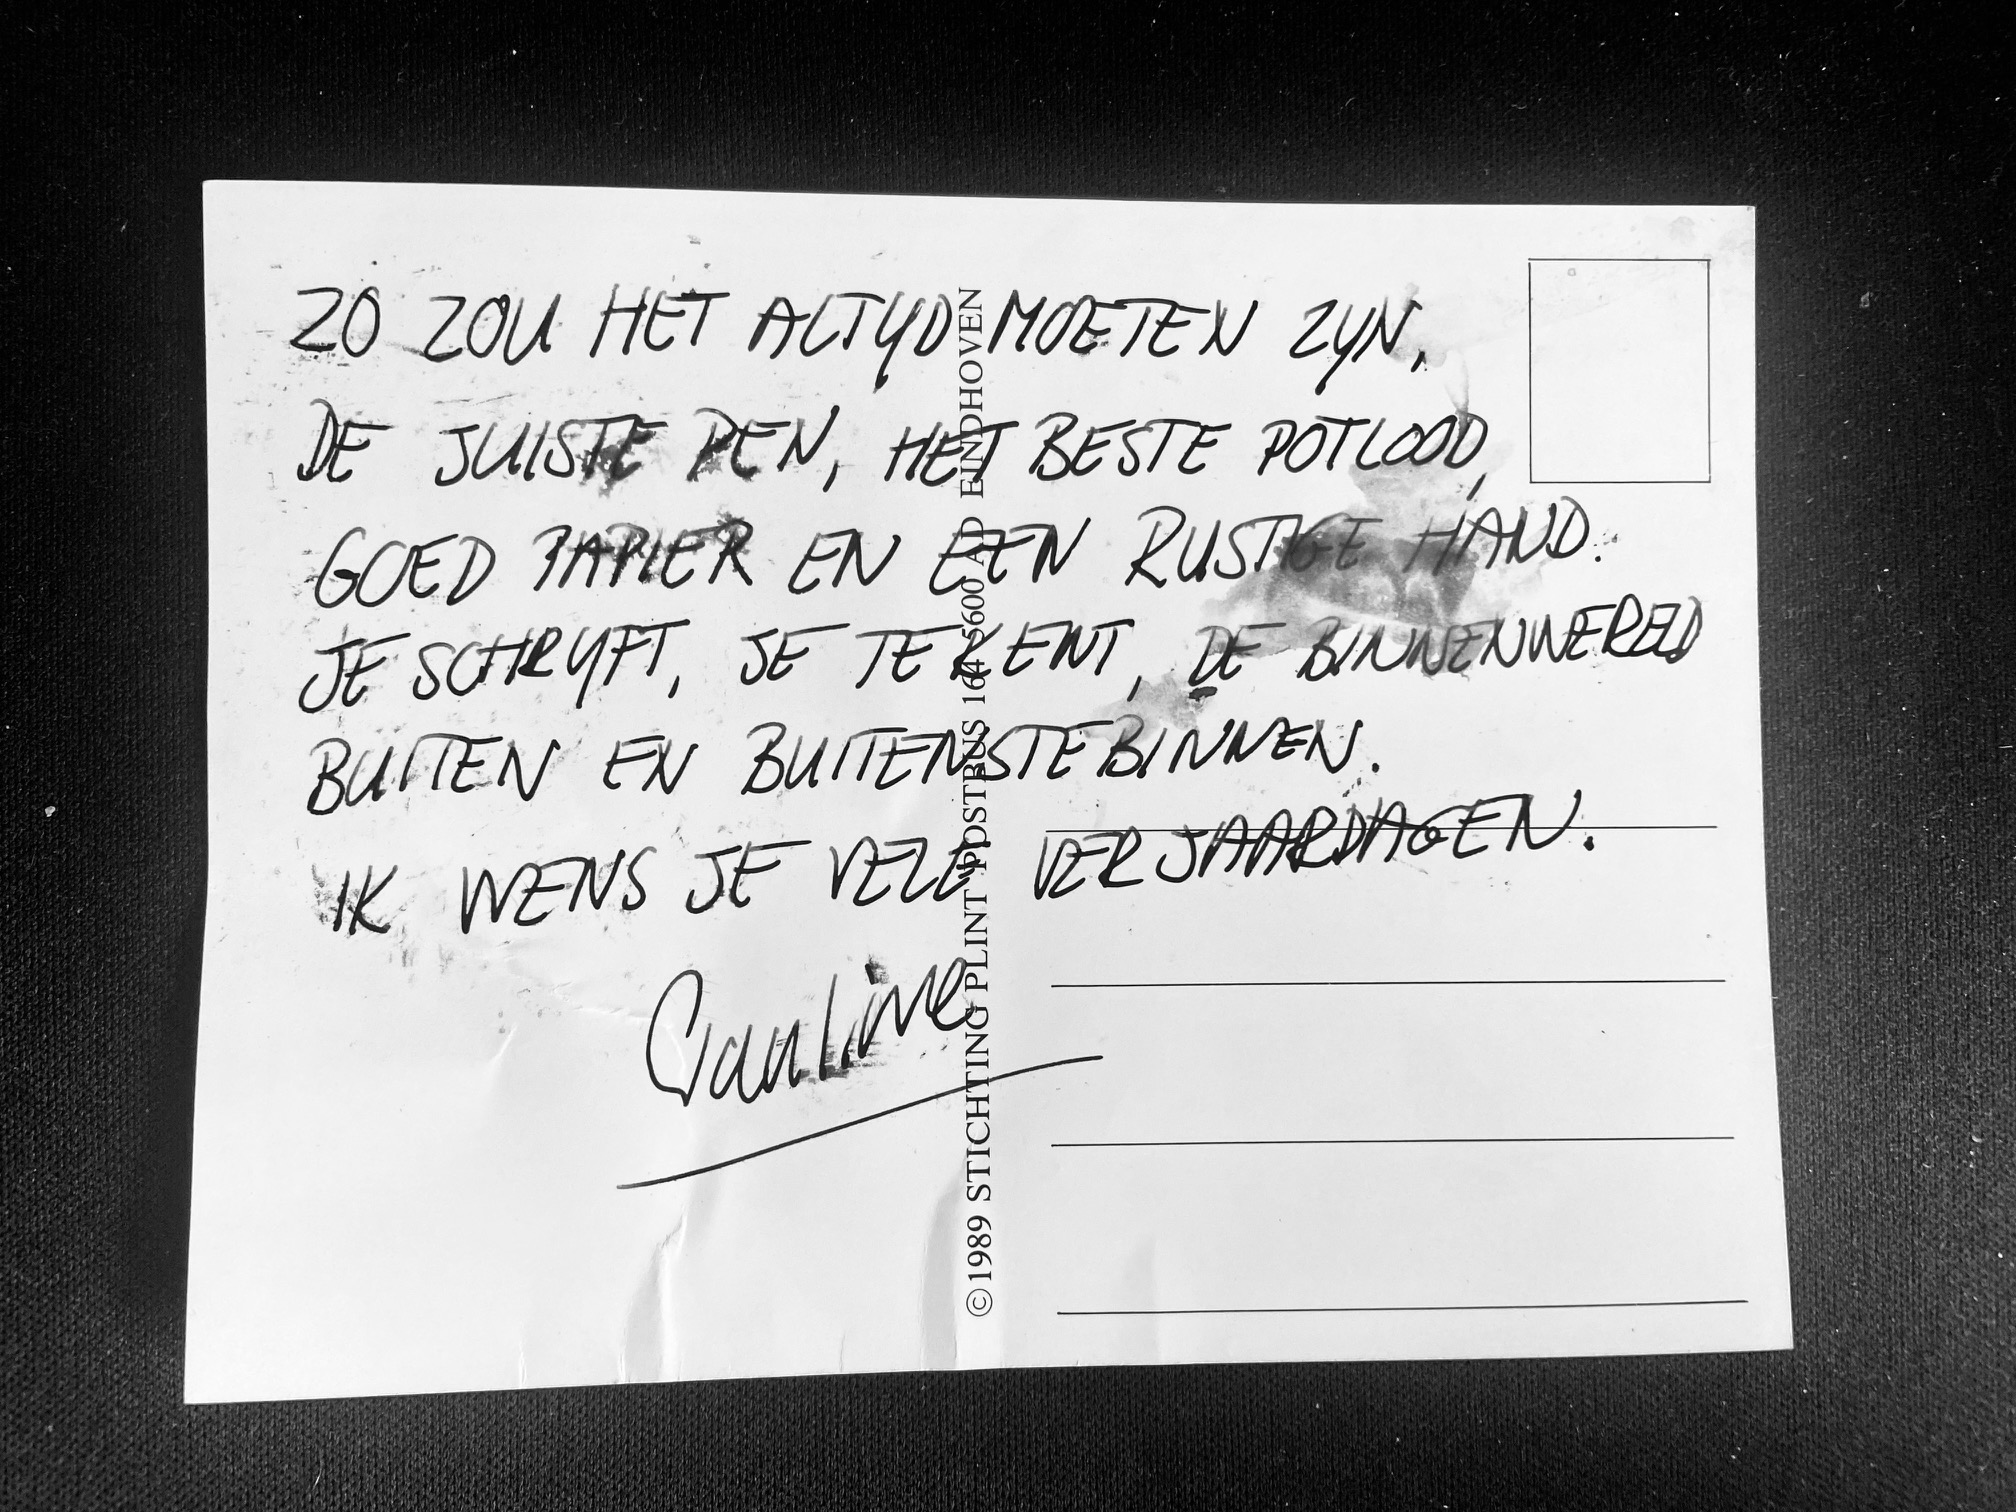 ZO ZOU HET ALTYD MOETEN ZYN,
DE JUISTE PEN, HET BESTE POTLOOD,
GOED PAPIER EN EEN RUSTIGE HAND.
JE SCHRYFT, JE TEKENT, DE BINNENWERELD
BUITEN EN BUITENSTEBINNEN.
IK WENS JE VELE VERJAARDAGEN.
Pauline
© 1989 STICHTING PLINT POSTBUS 164 5600 AD EINDHOVEN